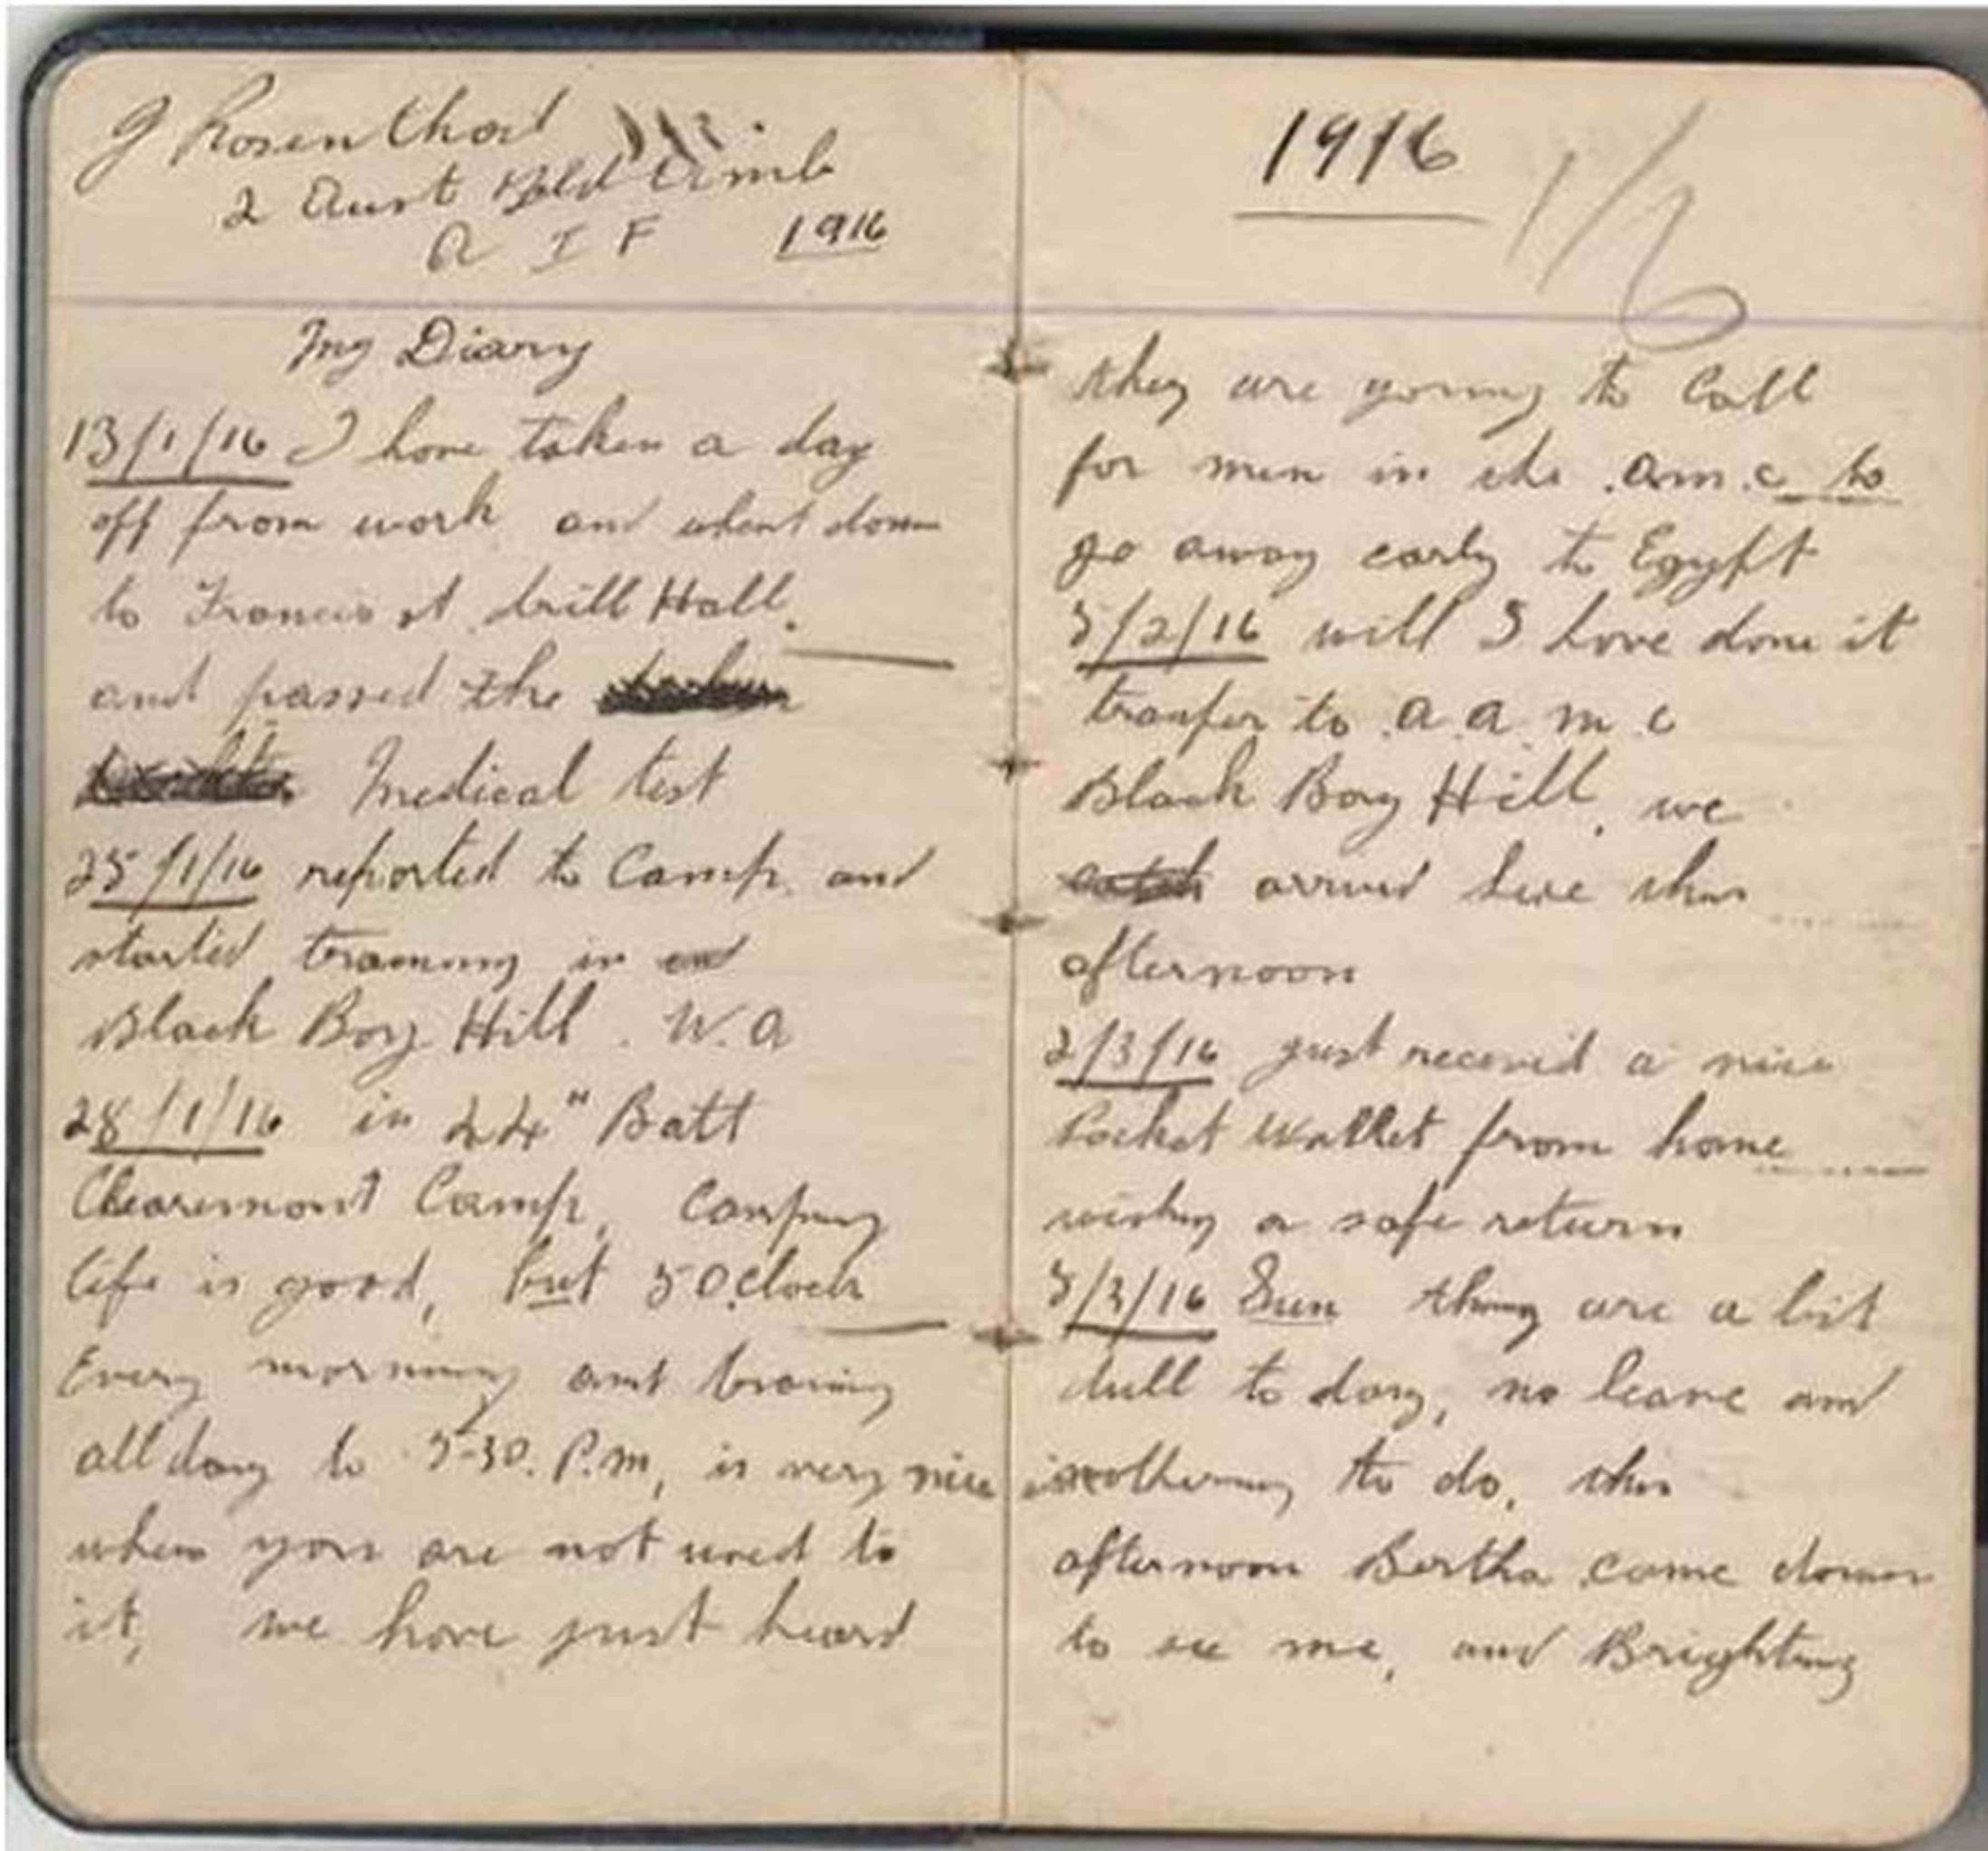 J Rosenthal
2 Aust Field Amb
A I F 1916
My Diary
13/1/16 I have taken a day
off from work and whent down
to Francis st drill Hall.
and passed the
Medical test
25/1/16 reported to Camp and
started training in
Black Boy Hill. W.A
28/1/16 in 44" Batt
Claremont Camp, Camping
life is good, but 5 Oclock
Every morning and training
all day to 5-30. P.m, is very nice
when you are not used to
it, we have just heard
1916
1/6
they are going to Call
for men in the .a.m.c to
go away early to Egypt
5/2/16 will I have done it
tranfer to .a.a.m.c
Black Boy Hill, we
arrived here this
afternoon
2/3/16 just received a nice
Pocket Wallet from home
wishing a safe return
5/3/16 Sun thing are a bit
dull to day, no leave and
nothing to do, this
afternoon Bertha came down
to see me, and Brighting